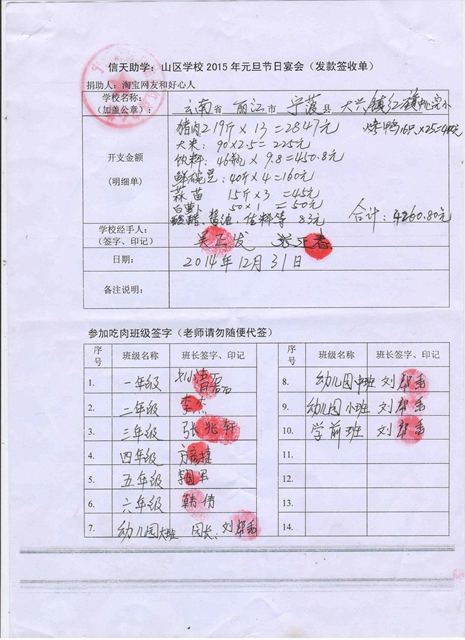 信天助学：山区学校 2015 年元旦节日宴会（发款签收单）
捐助人：淘宝网友和好心人
学校名称：
（加盖公章）：
云南省 丽江市 宁蒗县 大兴镇红旗完小
开支金额
（明细单）
猪肉219斤×13=2847元 烤鸭16只×25=400元
大米：90×2.5=225元
饮料：46瓶×9.8=450.8元
40斤×4=160元
蒜苗 15斤×3=45元
白萝 50×1=50元
酱油、佐料等 83元
合计：4260.80元
学校经手人：
（签字、印记）
吴正发
日期： 2014年12月31日
备注说明：
参加吃肉班级签字（老师请勿随便代签）
序号 班级名称 班长签字、印记 序号 班级名称 班长签字、印记
1. 一年级
2. 二年级 李杰
3. 三年级 张兆轩
4. 四年级
5. 五年级
6. 六年级 韩倩
7. 幼儿园大班 园长：刘
8. 幼儿园中班 刘
9. 幼儿园小班 刘
10. 学前班 刘
11.
12.
13.
14.